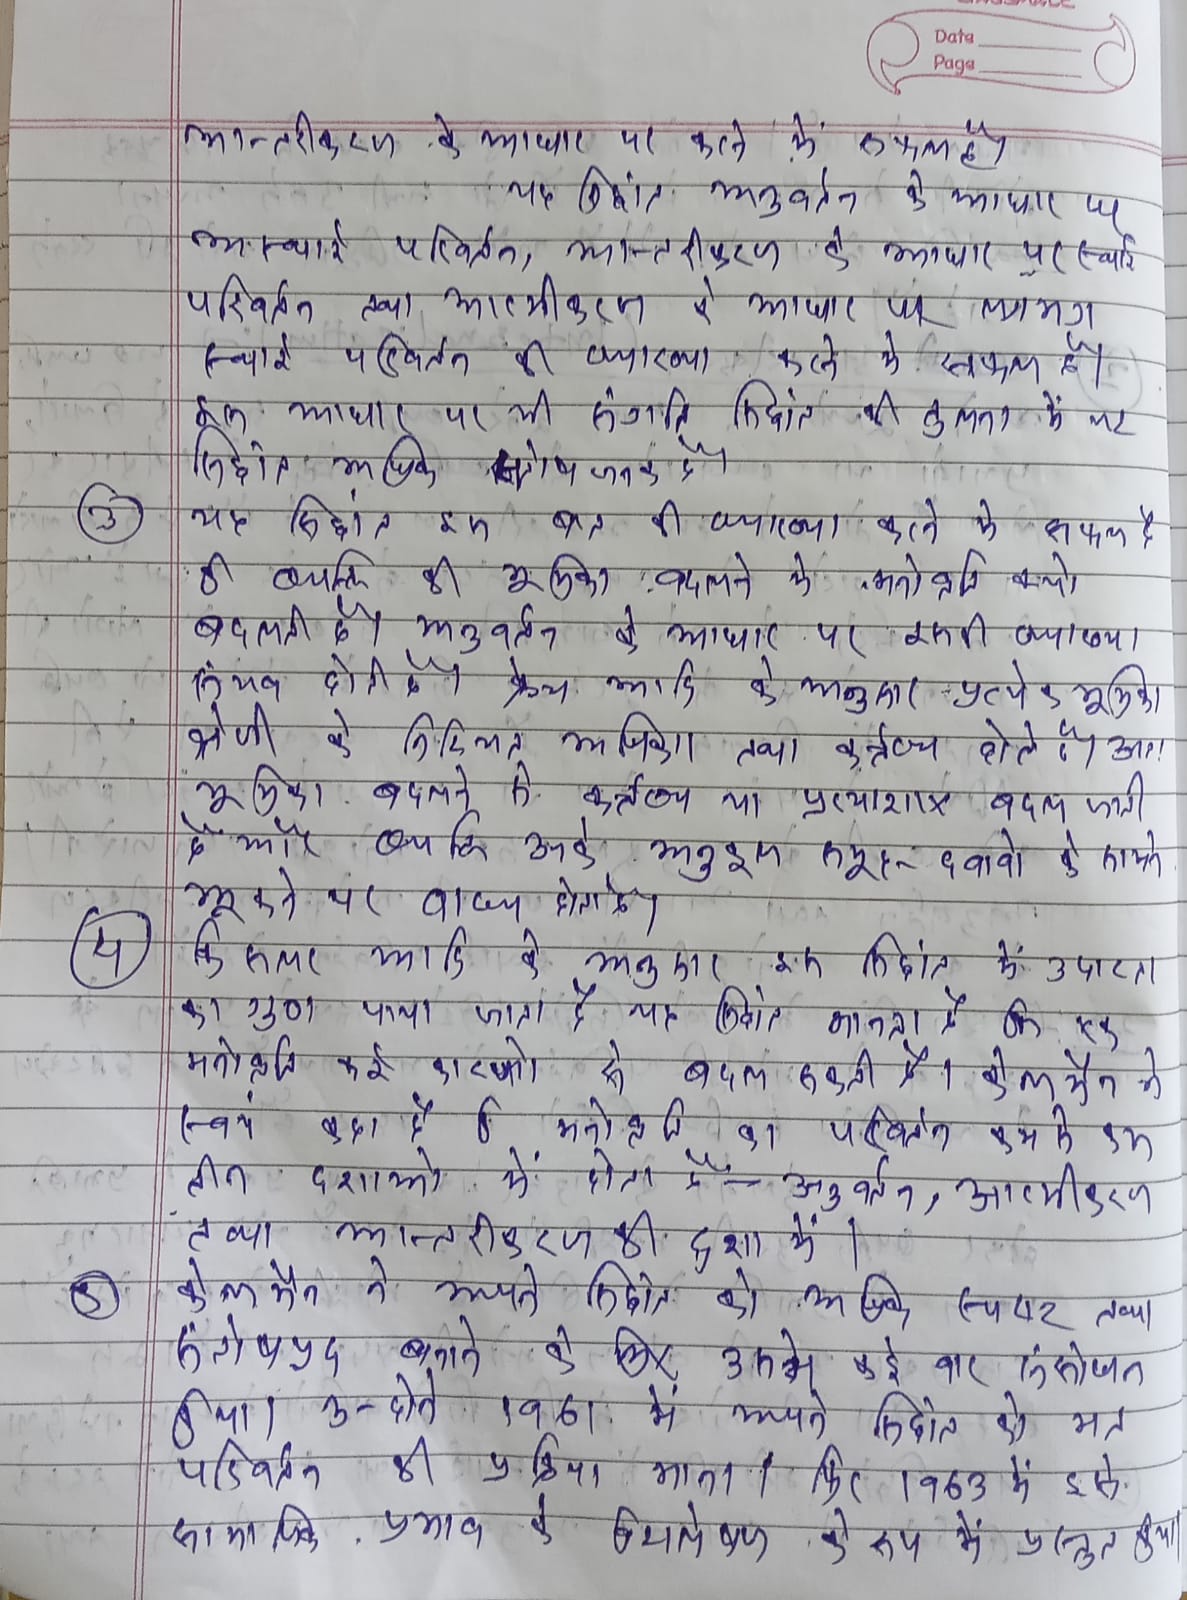 Date
Page
आन्तरीकरण के आधार पर करने में सफल है।
यह सिद्धांत अनुवर्तन के आधार पर
अस्थाई परिवर्तन, आन्तरीकरण के आधार पर स्थाई
परिवर्तन तथा आत्मीकरण के आधार पर लगभग
स्थाई परिवर्तन की व्याख्या करने में सफल है।
इस आधार पर भी संगति सिद्धांत की तुलना में यह
सिद्धांत अधिक संतोषजनक है।
③ यह सिद्धांत इस बात की व्याख्या करने में सफल है
की व्यक्ति की भूमिका बदलने से मनोवृत्ति क्यो
बदलती है। अनुवर्तन के आधार पर इसकी व्याख्या
संभव होती है। क्रेच आदि के अनुसार प्रत्येक भूमिका
श्रेणी के निश्चित अधिकार तथा कर्त्तव्य होते है। अतः
भूमिका बदलने से कर्त्तव्य या प्रत्याशाए बदल जाती
है और व्यक्ति उसके अनुरूप समूह-दवावो के सामने
झूकने पर वाध्य होता है।
④ किसलर आदि के अनुसार इस सिद्धांत में उदारता
का गुण पाया जाता है यह सिद्धांत मानता है कि एक
मनोवृत्ति कई कारणो से बदल सकती है। केलमैन ने
स्वयं कहा है कि मनोवृत्ति का परिवर्तन कम से कम
तीन दशाओ में होता है - अनुवर्तन, आत्मीकरण
तथा आन्तरीकरण की दशा में।
⑤ केलमैन ने अपने सिद्धांत को अधिक स्पष्ट तथा
संतोषप्रद बनाने के लिए उसमे कई वार संसोधन
किया। उन्होने 1961 में अपने सिद्धांत को मत
परिवर्तन की प्रक्रिया माना। फिर 1963 में इसे
सामाजिक प्रभाव के विश्लेषण के रूप में प्रस्तुत किया।